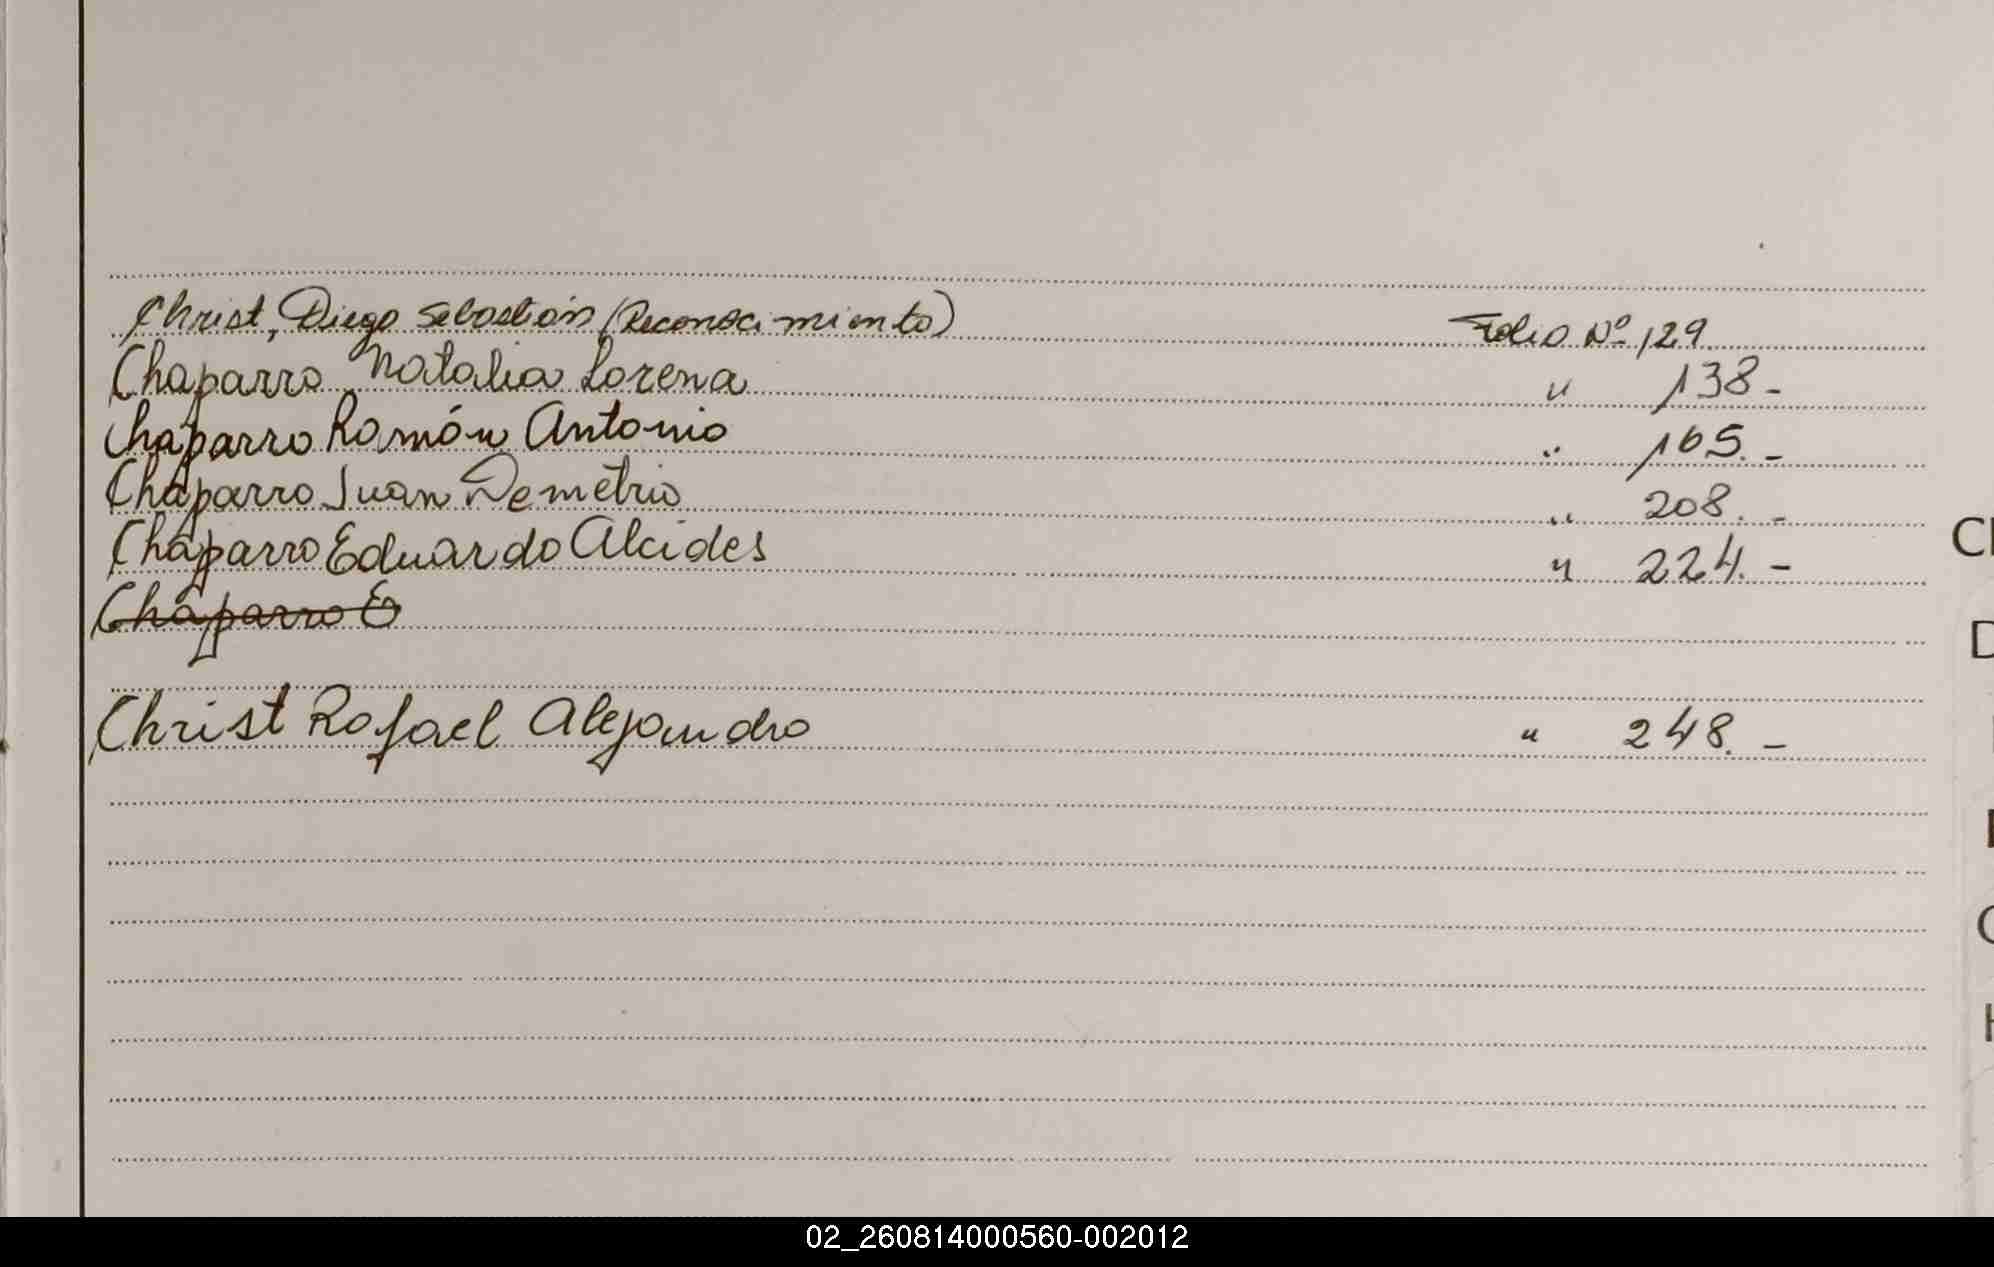 Christ, Diego Sebastián (Reconocimiento) Folio Nº 129
Chaparro Natalia Lorena " 138-
Chaparro Ramón Antonio " 165.-
Chaparro Juan Demetrio " 208.-
Chaparro Eduardo Alcides " 224.-
Chaparro E
Christ Rafael Alejandro " 248.-
02_260814000560-002012